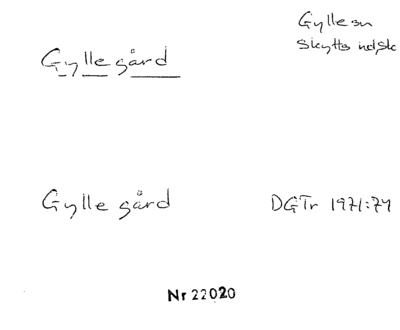 Gylle sn
Skytts hd, Sk
Gyllegård
Gylle gård
DGTr 1971:74
Nr 22020